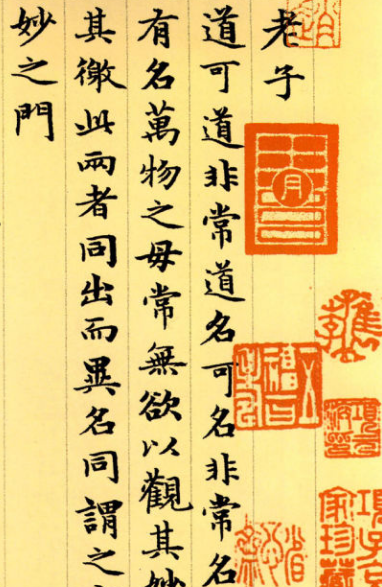 老子
道可道非常道名可名非常名
有名萬物之母常無欲以觀其妙
其徼此兩者同出而異名同謂之
妙之門
家珍藏